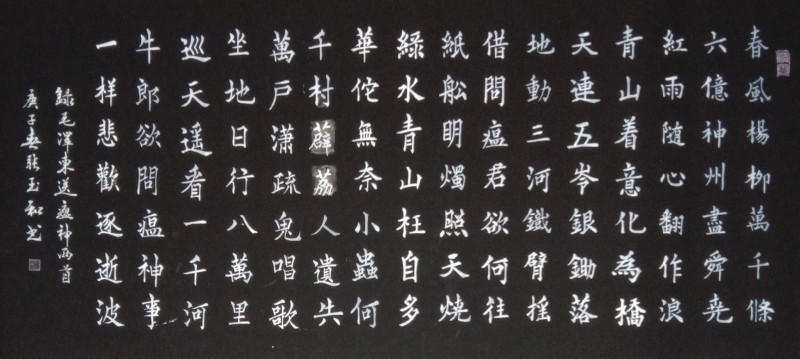 春風楊柳萬千條
六億神州盡舜堯
紅雨隨心翻作浪
青山着意化為橋
天連五岺銀鋤落
地動三河鐵臂摇
借問瘟君欲何往
紙舩眀燭照天燒
綠水青山枉自多
華佗無奈小蟲何
千村薜荔人遺矢
萬戶瀟疏鬼唱歌
坐地日行八萬里
巡天遥看一千河
牛郎欲問瘟神事
一樣悲歡逐逝波
録毛澤東送瘟神两首
庚子春張玉和书